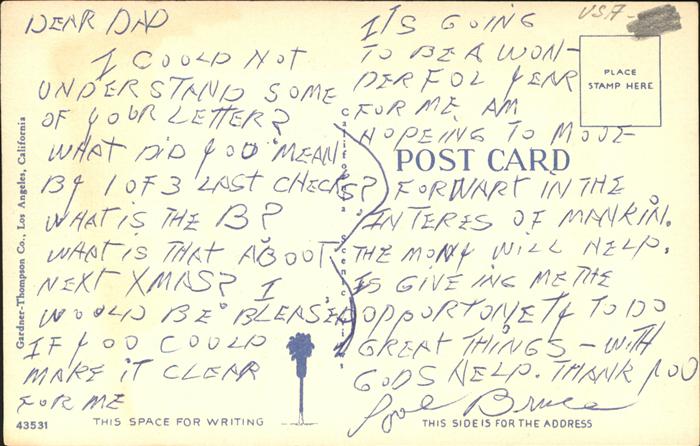 DEAR DAD
I COULD NOT
UNDERSTAND SOME
OF YOUR LETTER?
WHAT DID YOU MEAN
BY 1 OF 3 LAST CHECKS?
WHAT IS THE B?
WHAT IS THAT ABOOT
NEXT XMAS? I
WOULD BE BLEASED
IF YOU COULD
MAKE IT CLEAR
FOR ME
ITS GOING
TO BE A WON-
DERFOL YEAR
FOR ME. AM
HOPEING TO MOVE
FORWART IN THE
INTERES OF MANKIN.
THE MONY WILL HELP.
IS GIVEING ME THE
OPPORTONETY TO DO
GREAT THINGS - WITH
GODS HELP. THANK YOO
Bruce
USA-
PLACE
STAMP HERE
POST CARD
Gardner-Thompson Co., Los Angeles, California
California
43531
THIS SPACE FOR WRITING
THIS SIDE IS FOR THE ADDRESS